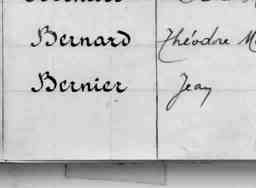 Bernard Théodore M
Bernier Jean